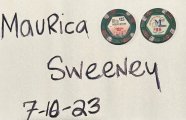 MauRica
Sweeney
7-10-23